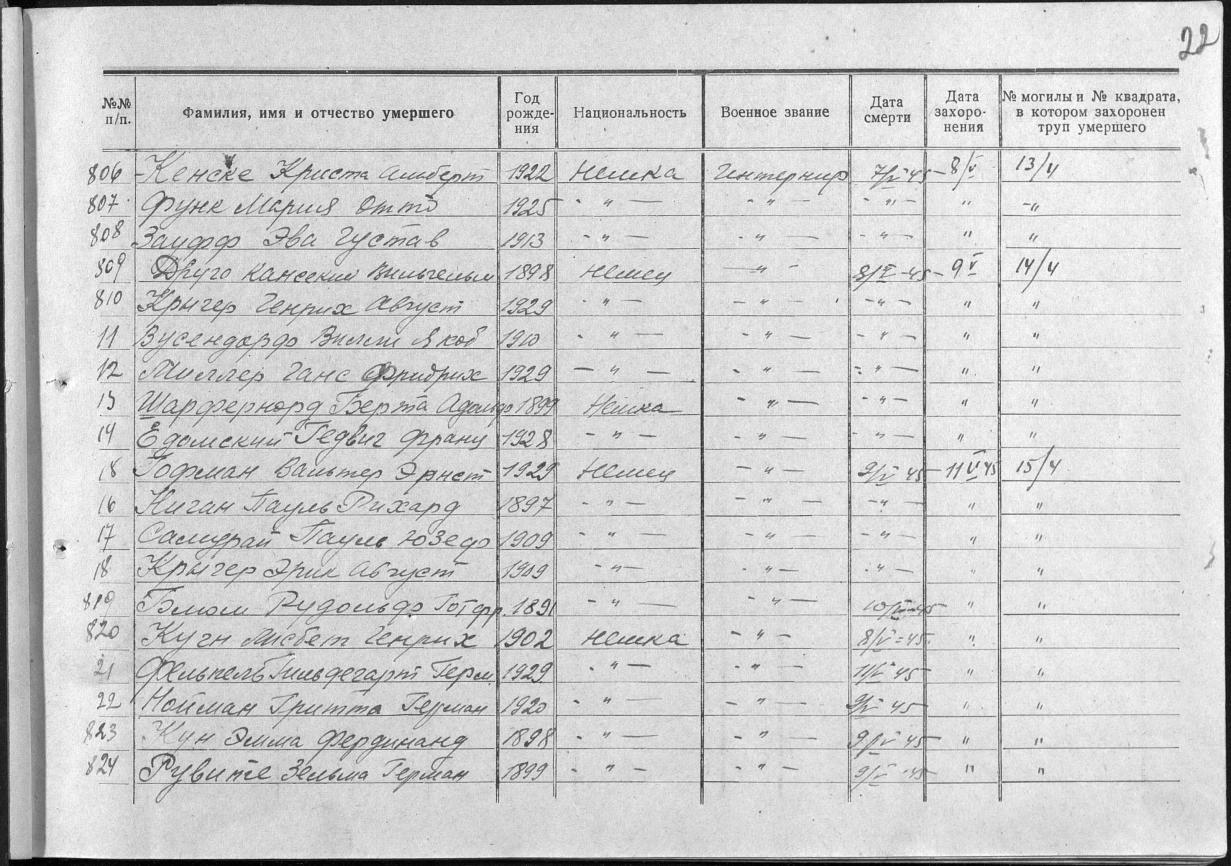 22
№№ п/п. Фамилия, имя и отчество умершего Год рождения Национальность Военное звание Дата смерти Дата захоронения № могилы и № квадрата, в котором захоронен труп умершего
806 Кенске Криста Альберт 1922 Немка Интернир 7/V 45 8/V 13/4
807 Функ Мария Отто 1925 - " - - " - - " - " - "
808 Заифф Эва Густав 1913 - " - - " - - " - " "
809 Вильгельм 1898 Немец - " - 8/V-45 9 V 14/4
810 Кригер Генрих Август 1929 - " - - " - - " - " "
11 Вусендорф Вилли Якоб 1910 - " - - " - - " - " "
12 Миллер Ганс Фридрих 1929 - " - - " - - " - " "
13 Шарфернорд Берта Адольф 1899 Немка - " - - " - " "
14 Едомский Гедвиг Франц 1928 - " - - " - - " - " "
18 Гофман Вальтер Эрнст 1929 Немец - " - 9/V 45 11 V 45 15/4
16 Киган Пауль Рихард 1897 - " - - " - - " - " "
17 Самурай Пауль Юзеф 1909 - " - - " - - " - " "
18 Крыгер Эрик Август 1909 - " - - " - - " - " "
819 Блюм Рудольф Готфр. 1891 - " - - " - 10/V-45 " "
820 Кугн Лисбет Генрих 1902 Немка - " - 8/V-45 " "
21 Фельпель Гильдегарт Герм. 1929 - " - - " - 11/V 45 " "
22 Нойман Гритта Герман 1920 - " - - " - 9/V 45 " "
823 Кун Эмма Фердинанд 1898 - " - - " - 9/V 45 " "
824 Рувите Зельма Герман 1899 - " - - " - 9/V-45 " "